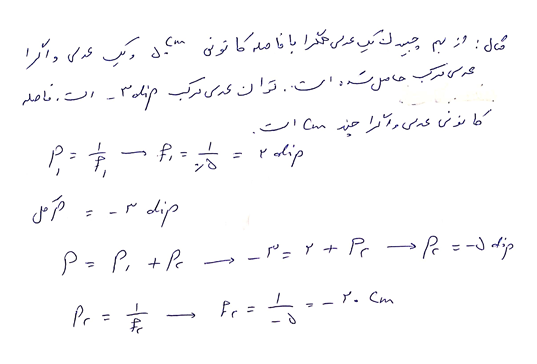 مثال: از بهم چسبیدن یک عدسی همگرا با فاصله کانونی ۵۰cm و یک عدسی واگرا
عدسی مرکب حاصل شده است. توان عدسی مرکب -۳ dip است. فاصله
کانونی عدسی واگرا چند cm است.
P₁ = ۱/f₁ → P₁ = ۱/۰٫۵ = ۲ dip
P کل = -۳ dip
P = P₁ + P₂ → -۳ = ۲ + P₂ → P₂ = -۵ dip
P₂ = ۱/f₂ → f₂ = ۱/-۵ = -۲۰ cm